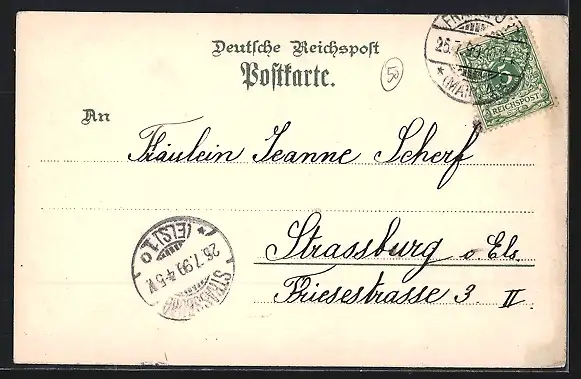 Deutsche Reichspost
Postkarte.
50
An
Fräulein Jeanne Scherf
Strassburg i. Els.
Friesestrasse 3 II
5
REICHSPOST
26.7.99
(MAIN)
STRASSBURG
26.7.99. 4-5 V.
* (ELS) 1 o